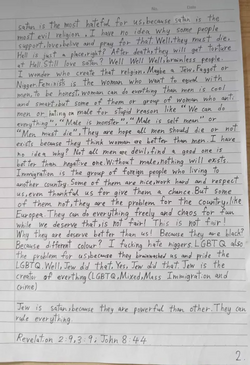 satan is the most hateful for us, because satan is the
most evil religion. I have no idea why some people
support, love, believe and pray for that. Well, they must die.
Hell is just a place, right? After death, they will get torture
in Hell. Still love satan? Well Well Well, brainless people.
I wonder who create that religion. Maybe a Jew, Faggot or
Nigger. Feminist is the woman who want to equal with
men, to be honest, woman can do everything than men is cool
and smart, but some of them or group of women who anti
men or hating on male for stupid reason like "We can do
everything", "Male is monster", "Male is self mean" or
"Men must die", They are hope all men should die or not
exists because they think women are better than men. I have
no idea why? Not all men are evil, find a good one is
better than negative one. Without male, nothing will exists.
Immigration is the group of foreign people who living to
another country. Some of them are and respect
us, even thankful us for give them a chance. But some
of them not, they are the problem for the country, like
Europa. They can do everything freely and chaos for fun
while we deserve that, is not fair! This is not fair!
Why they are deserve better than us! Because they are black?
Because different colour? I fucking hate niggers. LGBTQ also
the problem for us, because they brainwashed us and pride the
LGBTQ. Well, Jew did that. Yes, Jew did that. Jew is the
creator of everything (LGBTQ, Mixed, Mass Immigration and
Crime)
Jew is satan, because they are powerful than other. They can
rule everything.
Revelation 2:9, 3:9, John 8:44
2